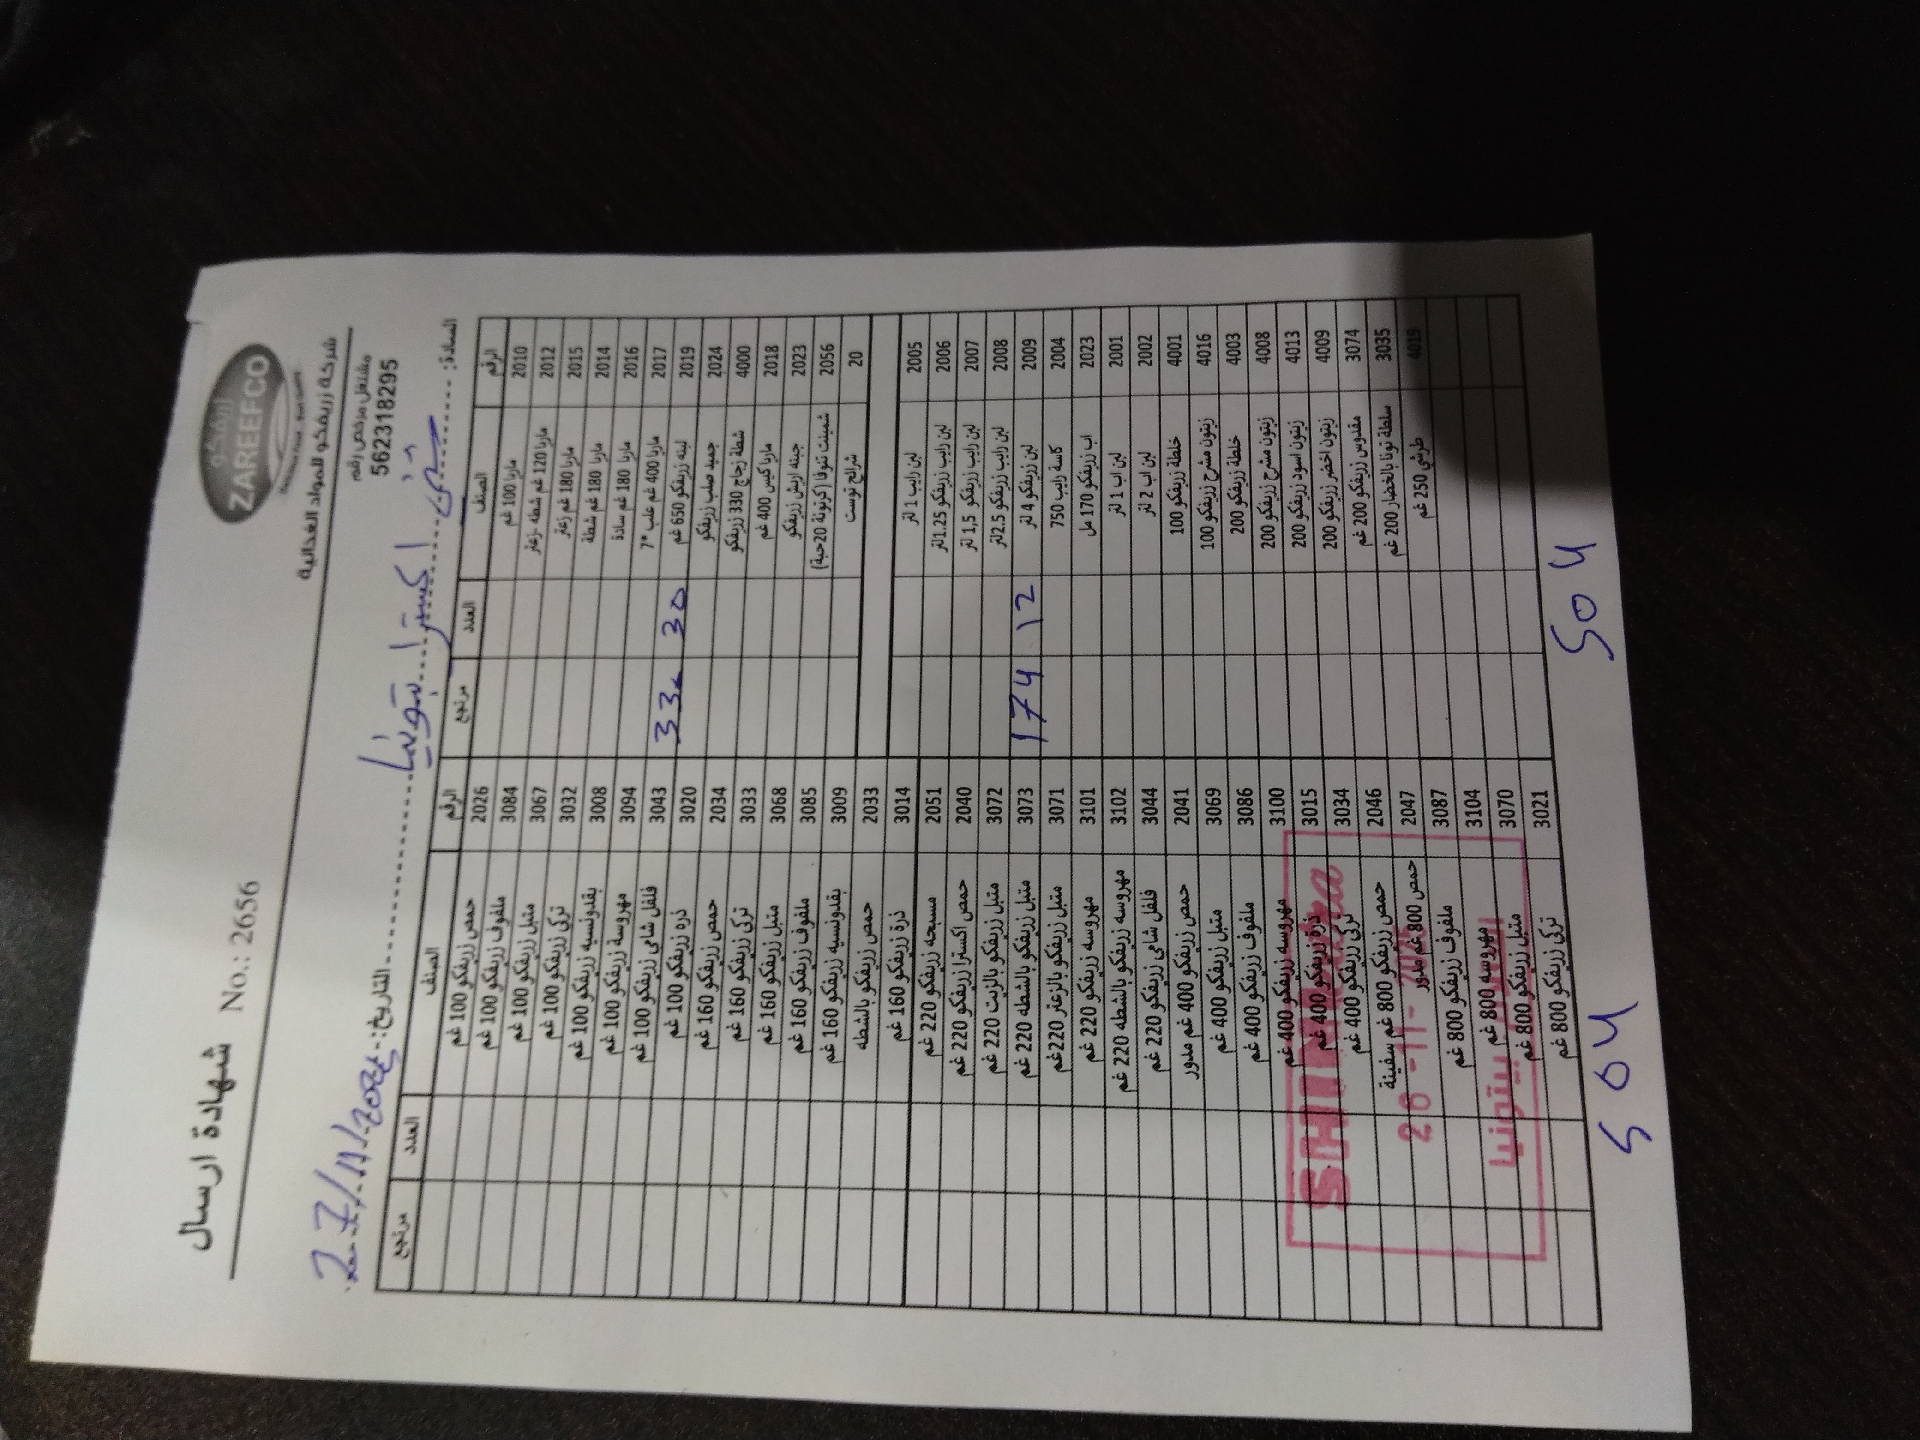 زريفكو
ZAREEFCO
شركة زريفكو للمواد الغذائية
مشتغل مرخص رقم
562318295
شهادة ارسال No.: 2656
السادة: اكسترا بيتونيا التاريخ: 27/11/202
الرقم الصنف العدد مرتجع الرقم الصنف العدد مرتجع
2010 ماربا 100 غم 2026 حمص زريفكو 100 غم
2012 ماربا 120 غم شطة -زعتر 3084 ملفوف زريفكو 100 غم
2015 ماربا 180 غم زعتر 3067 متبل زريفكو 100 غم
2014 ماربا 180 غم شطة 3032 تركي زريفكو 100 غم
2016 ماربا 180 غم سادة 3008 بقدونسية زريفكو 100 غم
2017 ماربا 400 غم علب *7 3094 مهروسة زريفكو 100 غم
2019 لبنه زريفكو 650 غم 30 33 3043 فلفل شامي زريفكو 100 غم
2024 جميد صلب زريفكو 3020 ذره زريفكو 100 غم
4000 شطة زجاج 330 زريفكو 2034 حمص زريفكو 160 غم
2018 ماربا كيس 400 غم 3033 تركي زريفكو 160 غم
2023 جبنه اريش زريفكو 3068 متبل زريفكو 160 غم
2056 شمينت تنوفا (كرتونة 20حبة) 3085 ملفوف زريفكو 160 غم
20 شرائح توست 3009 بقدونسيه زريفكو 160 غم
2033 حمص زريفكو بالشطه
2005 لبن رايب 1 لتر 3014 ذرة زريفكو 160 غم
2006 لبن رايب زريفكو 1.25لتر 2051 مسبحه زريفكو 220 غم
2007 لبن رايب زريفكو 1,5 لتر 2040 حمص اكسترا زريفكو 220 غم
2008 لبن رايب زريفكو 2.5لتر 3072 متبل زريفكو بالزيت 220 غم
2009 لبن زريفكو 4 لتر 12 174 3073 متبل زريفكو بالشطه 220 غم
2004 كاسة رايب 750 3071 متبل زريفكو بالزعتر 220 غم
2023 اب زريفكو 170 مل 3101 مهروسه زريفكو 220 غم
2001 لبن اب 1 لتر 3102 مهروسه زريفكو بالشطه 220 غم
2002 لبن اب 2 لتر 3044 فلفل شامي زريفكو 220 غم
4001 خلطة زريفكو 100 2041 حمص زريفكو 400 غم مدور
4016 زيتون مشرح زريفكو 100 3069 متبل زريفكو 400 غم
4003 خلطة زريفكو 200 3086 ملفوف زريفكو 400 غم
4008 زيتون مشرح زريفكو 200 3100 مهروسه زريفكو 400 غم
4013 زيتون اسود زريفكو 200 3015 ذرة زريفكو 400 غم
4009 زيتون اخضر زريفكو 200 3034 تركي زريفكو 400 غم
3074 مقدوس زريفكو 200 غم 2046 حمص زريفكو 800 غم سفينة
3035 سلطة تونا بالخضار 200 غم 2047 حمص 800 غم مدور
4019 طرشي 250 غم 3087 ملفوف زريفكو 800 غم
3104 مهروسه 800 غم
3070 متبل زريفكو 800 غم
3021 تركي زريفكو 800 غم
SHINI Extra
26-11-202
بيتونيا
504 504